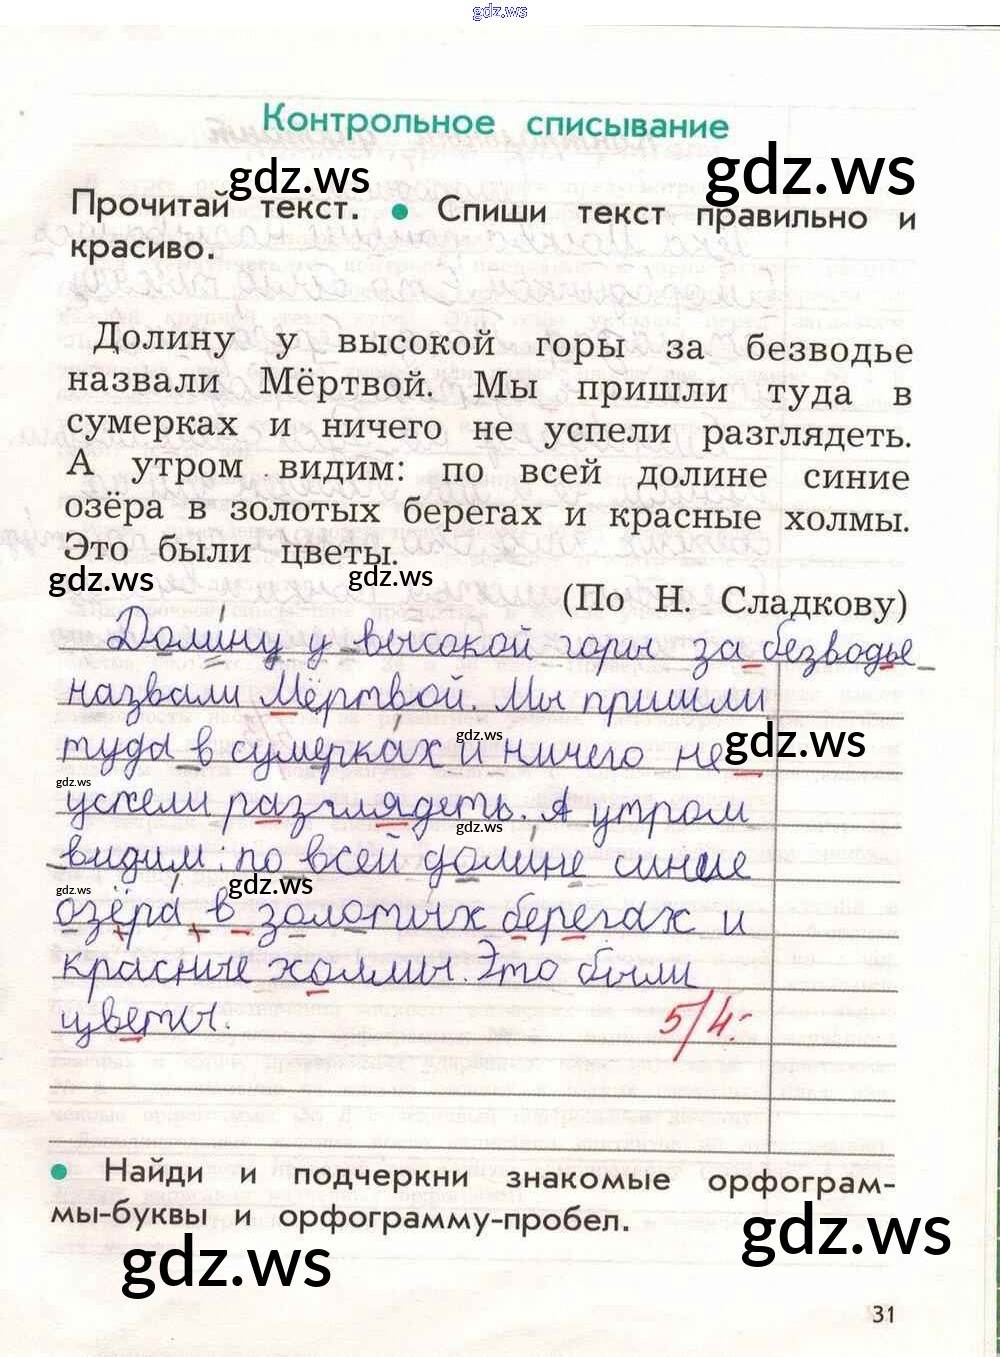 gdz.ws
Контрольное списывание
gdz.ws
gdz.ws
Прочитай текст. ● Спиши текст правильно и
красиво.
Долину у высокой горы за безводье
назвали Мёртвой. Мы пришли туда в
сумерках и ничего не успели разглядеть.
А утром видим: по всей долине синие
озёра в золотых берегах и красные холмы.
Это были цветы.
gdz.ws
gdz.ws
(По Н. Сладкову)
Долину у высокой горы за безводье
назвали Мёртвой. Мы пришли
gdz.ws
gdz.ws
туда в сумерках и ничего не
gdz.ws
успели разглядеть. А утром
gdz.ws
видим: по всей долине синие
gdz.ws
gdz.ws
озёра в золотых берегах и
красные холмы. Это были
цветы.
5/4.
● Найди и подчеркни знакомые орфограм-
мы-буквы и орфограмму-пробел.
gdz.ws
gdz.ws
31